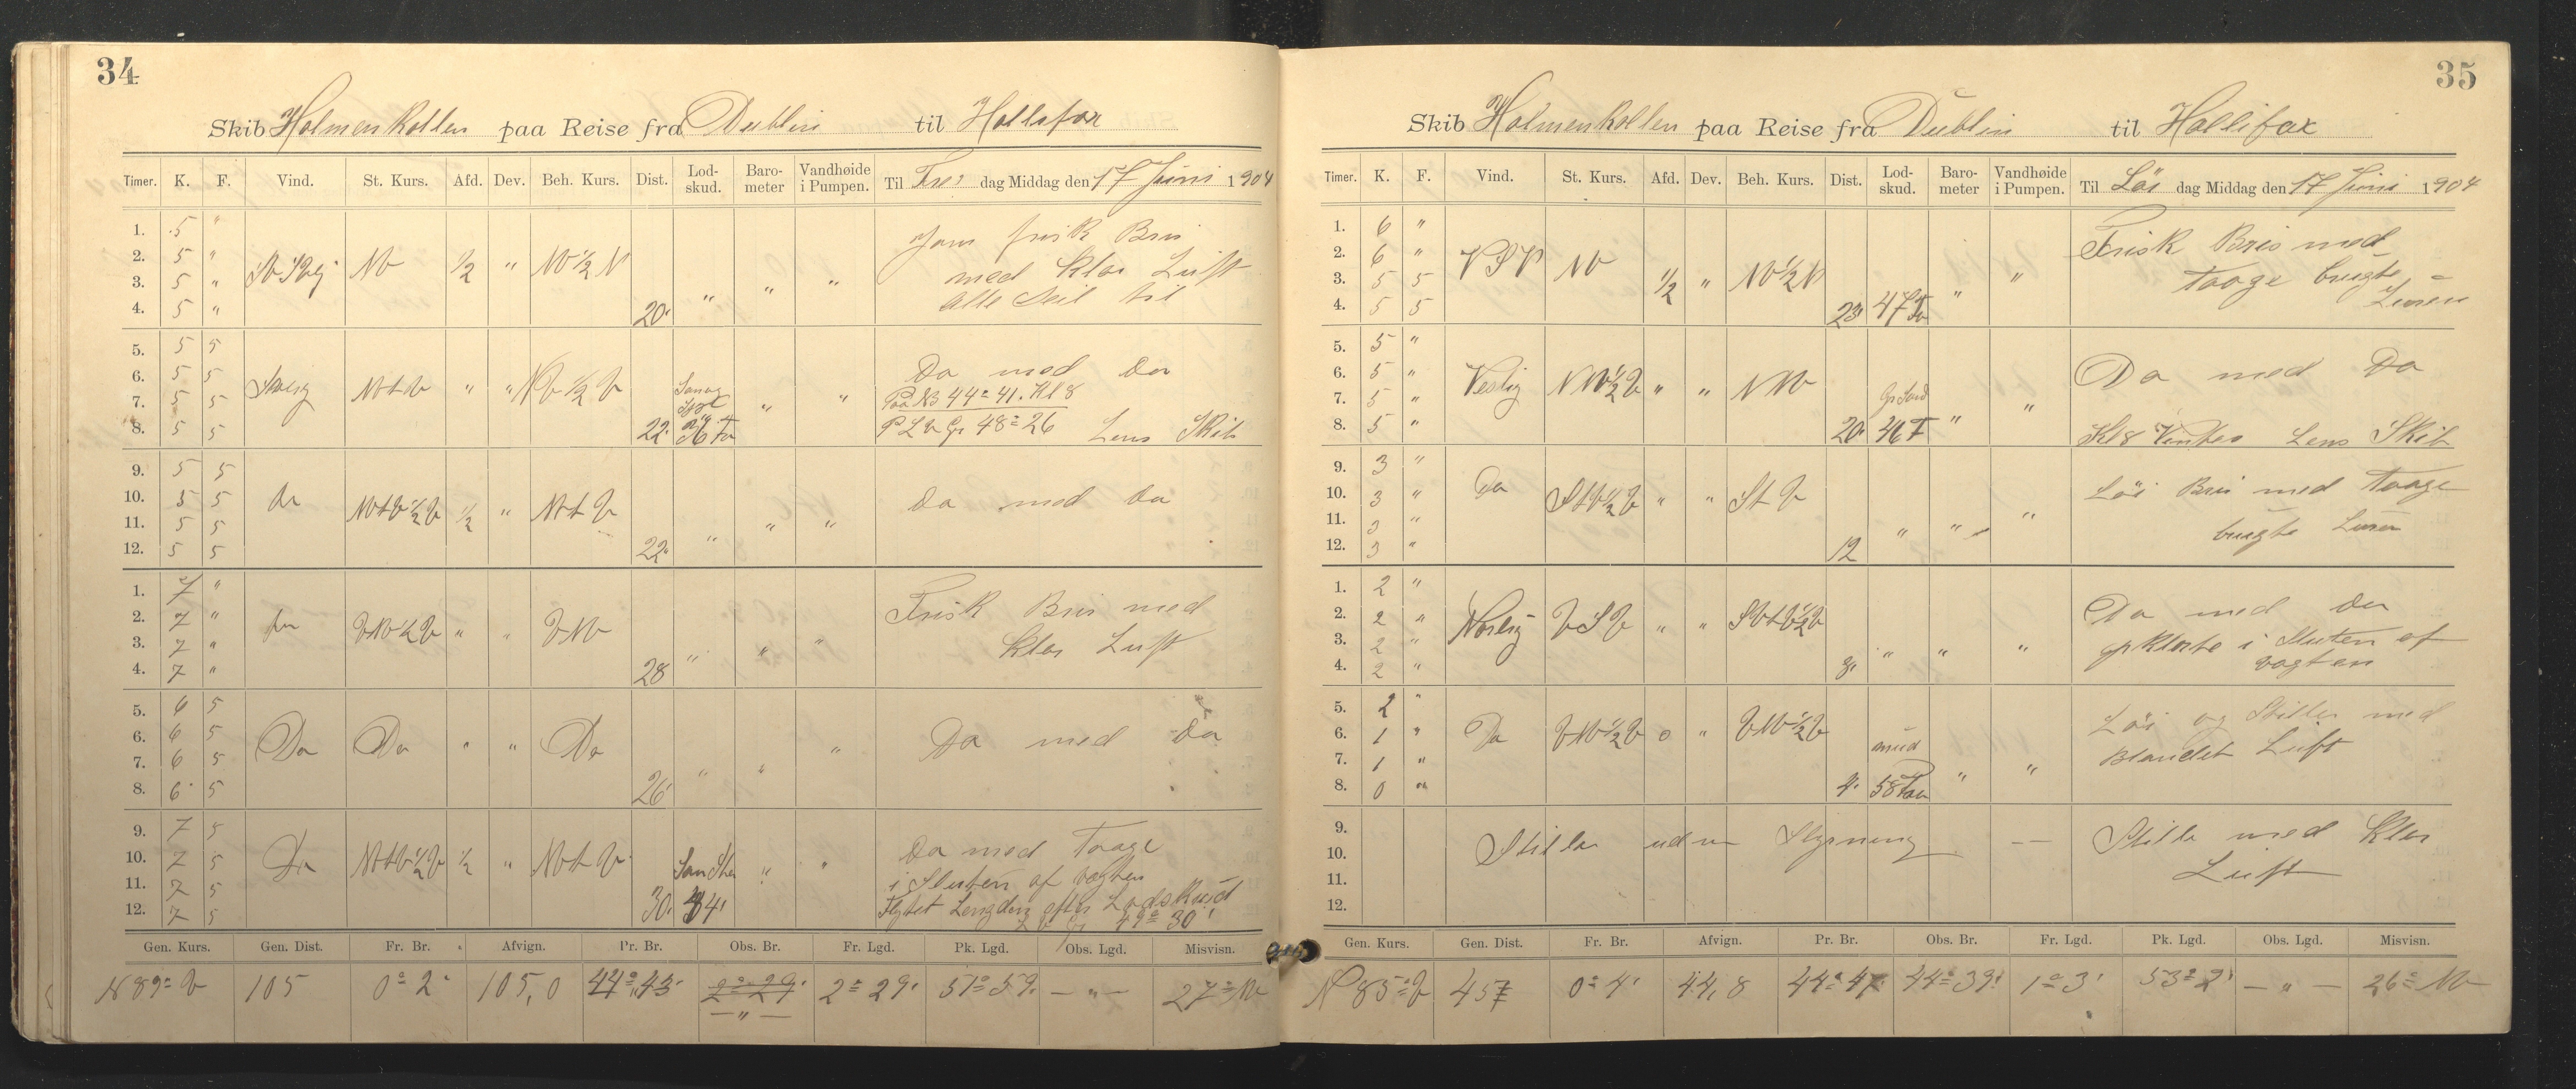 34
Skib Holmenkollen paa Reise fra Dublin til Hallifax
Timer. K. F. Vind. St. Kurs. Afd. Dev. Beh. Kurs. Dist. Lod-skud. Baro-meter Vandhøide i Pumpen. Til Fre dag Middag den 17 Juni 1904
1. 5 "
2. 5 "
3. 5 " NV 1/2 " NV 1/2 N " " "
4. 5 " 20
Javn frisk Bris
med klar Luft
alle Seil til
5. 5 5
6. 5 5
7. 5 5 " " "
8. 5 5 22
Do med Do
44° 41. Kl 8
48° 26 Lens Skib
9. 5 5
10. 5 5 Do 1/2 " " " "
11. 5 5
12. 5 5 22
Do med Do
1. 7 "
2. 7 " Do VNV 1/2 V " " VNV
3. 7 " " " "
4. 7 " 28
Frisk Bris med
klar Luft
5. 6 5
6. 6 5 Do Do " " Do
7. 6 5 " " "
8. 6 5 26
Do med Do
9. 7 5
10. 7 5 Do 1/2 " " "
11. 7 5
12. 7 5 30 34
Do med Taage
i Slutten af Vagten
Flyttet Lengden efter Lodskud
49° 30'
Gen. Kurs. Gen. Dist. Fr. Br. Afvign. Pr. Br. Obs. Br. Fr. Lgd. Pk. Lgd. Obs. Lgd. Misvisn.
N 89° V 105 0° 2' 105,0 44° 43' 2° 29' 2° 29' 51° 59' — " — 27° NV
— " —
35
Skib Holmenkollen paa Reise fra Dublin til Hallifax
Timer. K. F. Vind. St. Kurs. Afd. Dev. Beh. Kurs. Dist. Lod-skud. Baro-meter Vandhøide i Pumpen. Til Lör dag Middag den 17 Juni 1904
1. 6 "
2. 6 " VSV NV
3. 5 5 1/2 " NV 1/2 N " "
4. 5 5 23 47 Fv
Frisk Bris med
Taage brugte
Luren
5. 5 "
6. 5 " Vestlig NNV 1/2 V " " NNV
7. 5 " Gr Sand " "
8. 5 " 20 36 F
Do med Do
Kl 8 Lens Skib
9. 3 "
10. 3 " Do " "
11. 3 " " " "
12. 3 " 12
Löi Bris med Taage
brugte Luren
1. 2 "
2. 2 " VSV " "
3. 2 " " " "
4. 2 " 8
Do med Do
opklarte i Slutten af
vagten
5. 2 "
6. 1 " Do VNV 1/2 V 0 " VNV 1/2 V
7. 1 " mud " "
8. 0 " 4 58
Löi og Stille med
Blandet Luft
9.
10. Stille uden Styrning — —
11.
12.
Stille med klar
Luft
Gen. Kurs. Gen. Dist. Fr. Br. Afvign. Pr. Br. Obs. Br. Fr. Lgd. Pk. Lgd. Obs. Lgd. Misvisn.
N 85° V 45 0° 4' 44,8 44° 47' 44° 39' 1° 3' 53° 2' — " — 26° NV